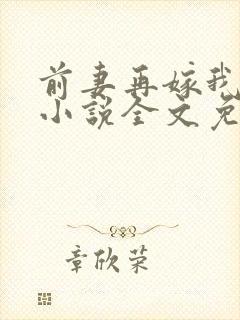 前妻再嫁我
小说全文免
章欣荣